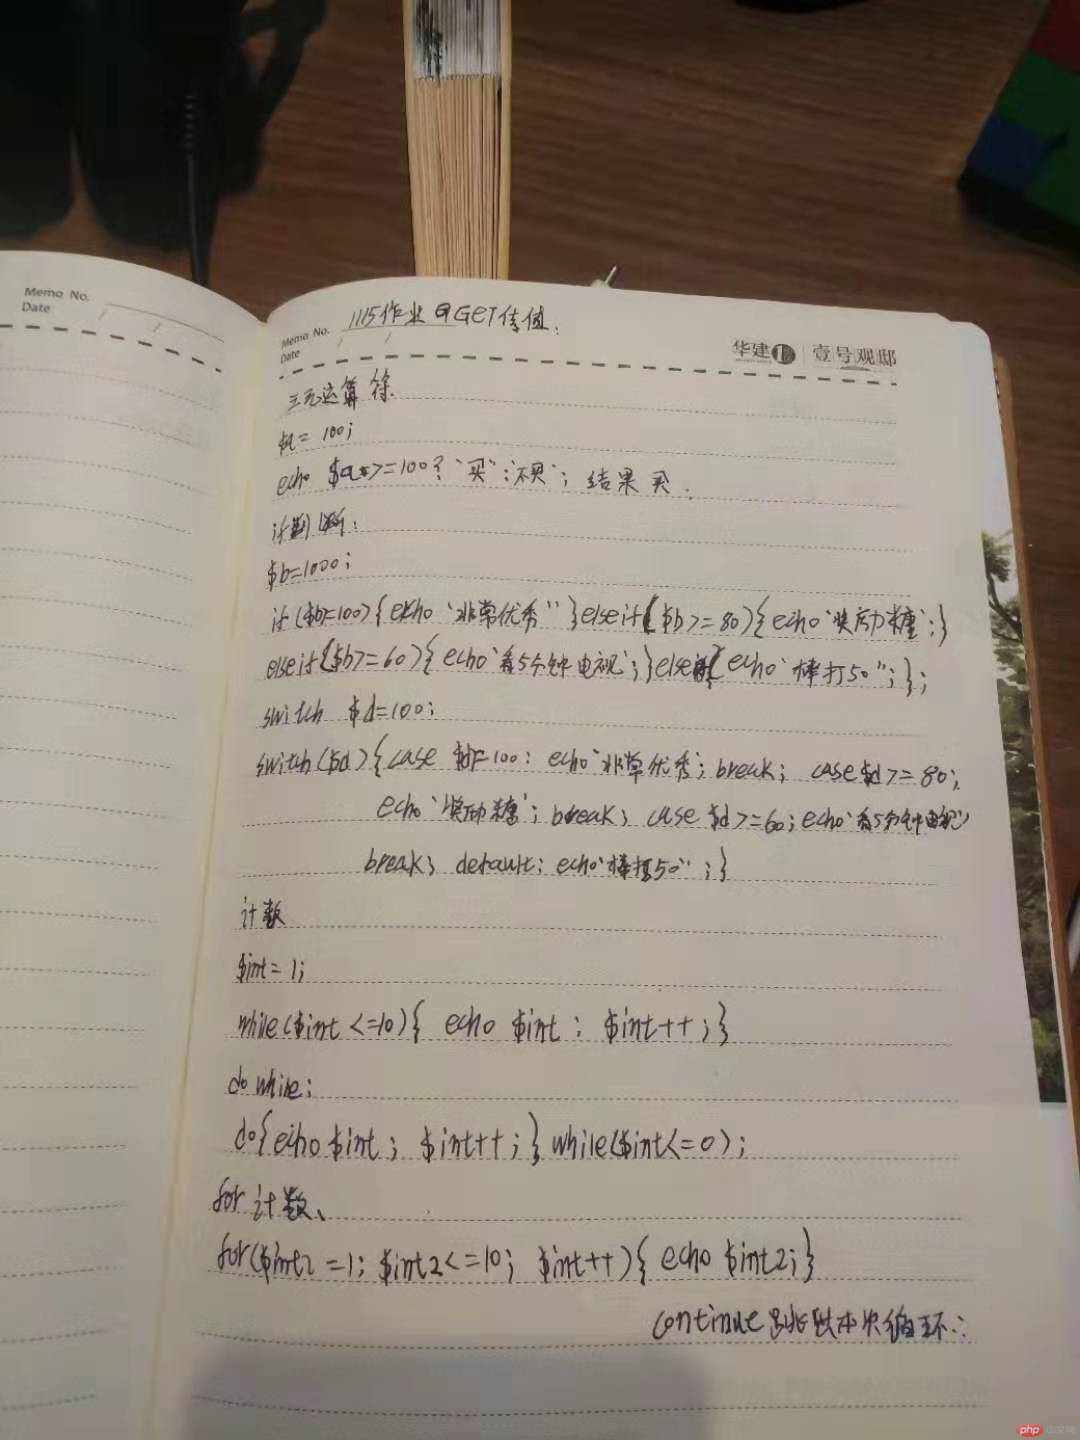 Memo No.
Date
Memo No.
Date
1115作业 GET传值.
华建1 壹号观邸
三元运算符.
$a = 100;
echo $a>=100?'买':'不买'; 结果 买.
if判断:
$b=1000;
if($b=100){echo '非常优秀'}elseif($b>=80){echo '奖励糖';}
elseif($b>=60){echo '看5分钟电视';}else{echo '棒打50';};
switch $d=100;
switch($d){case $d=100: echo '非常优秀'; break; case $d>=80;
echo '奖励糖'; break; case $d>=60; echo '看5分钟电视'
break; default; echo '棒打50';}
计数
$int = 1;
while($int <=10){ echo $int; $int++;}
do while;
do{echo $int; $int++;} while($int<=0);
for 计数、
for($int2 =1; $int2<=10; $int++){ echo $int2;}
continue 跳出本次循环.
php 中文网